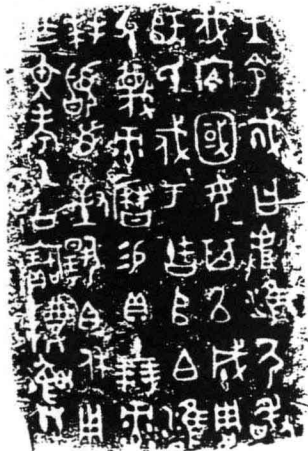 王令𢦚曰𠭯淮尸敢
伐内國女其以成周
師氏戍于𠂤白雍
父蔑彔曆易貝十朋彔
拜䭫首對揚白休用
乍文考乙公寶尊彝